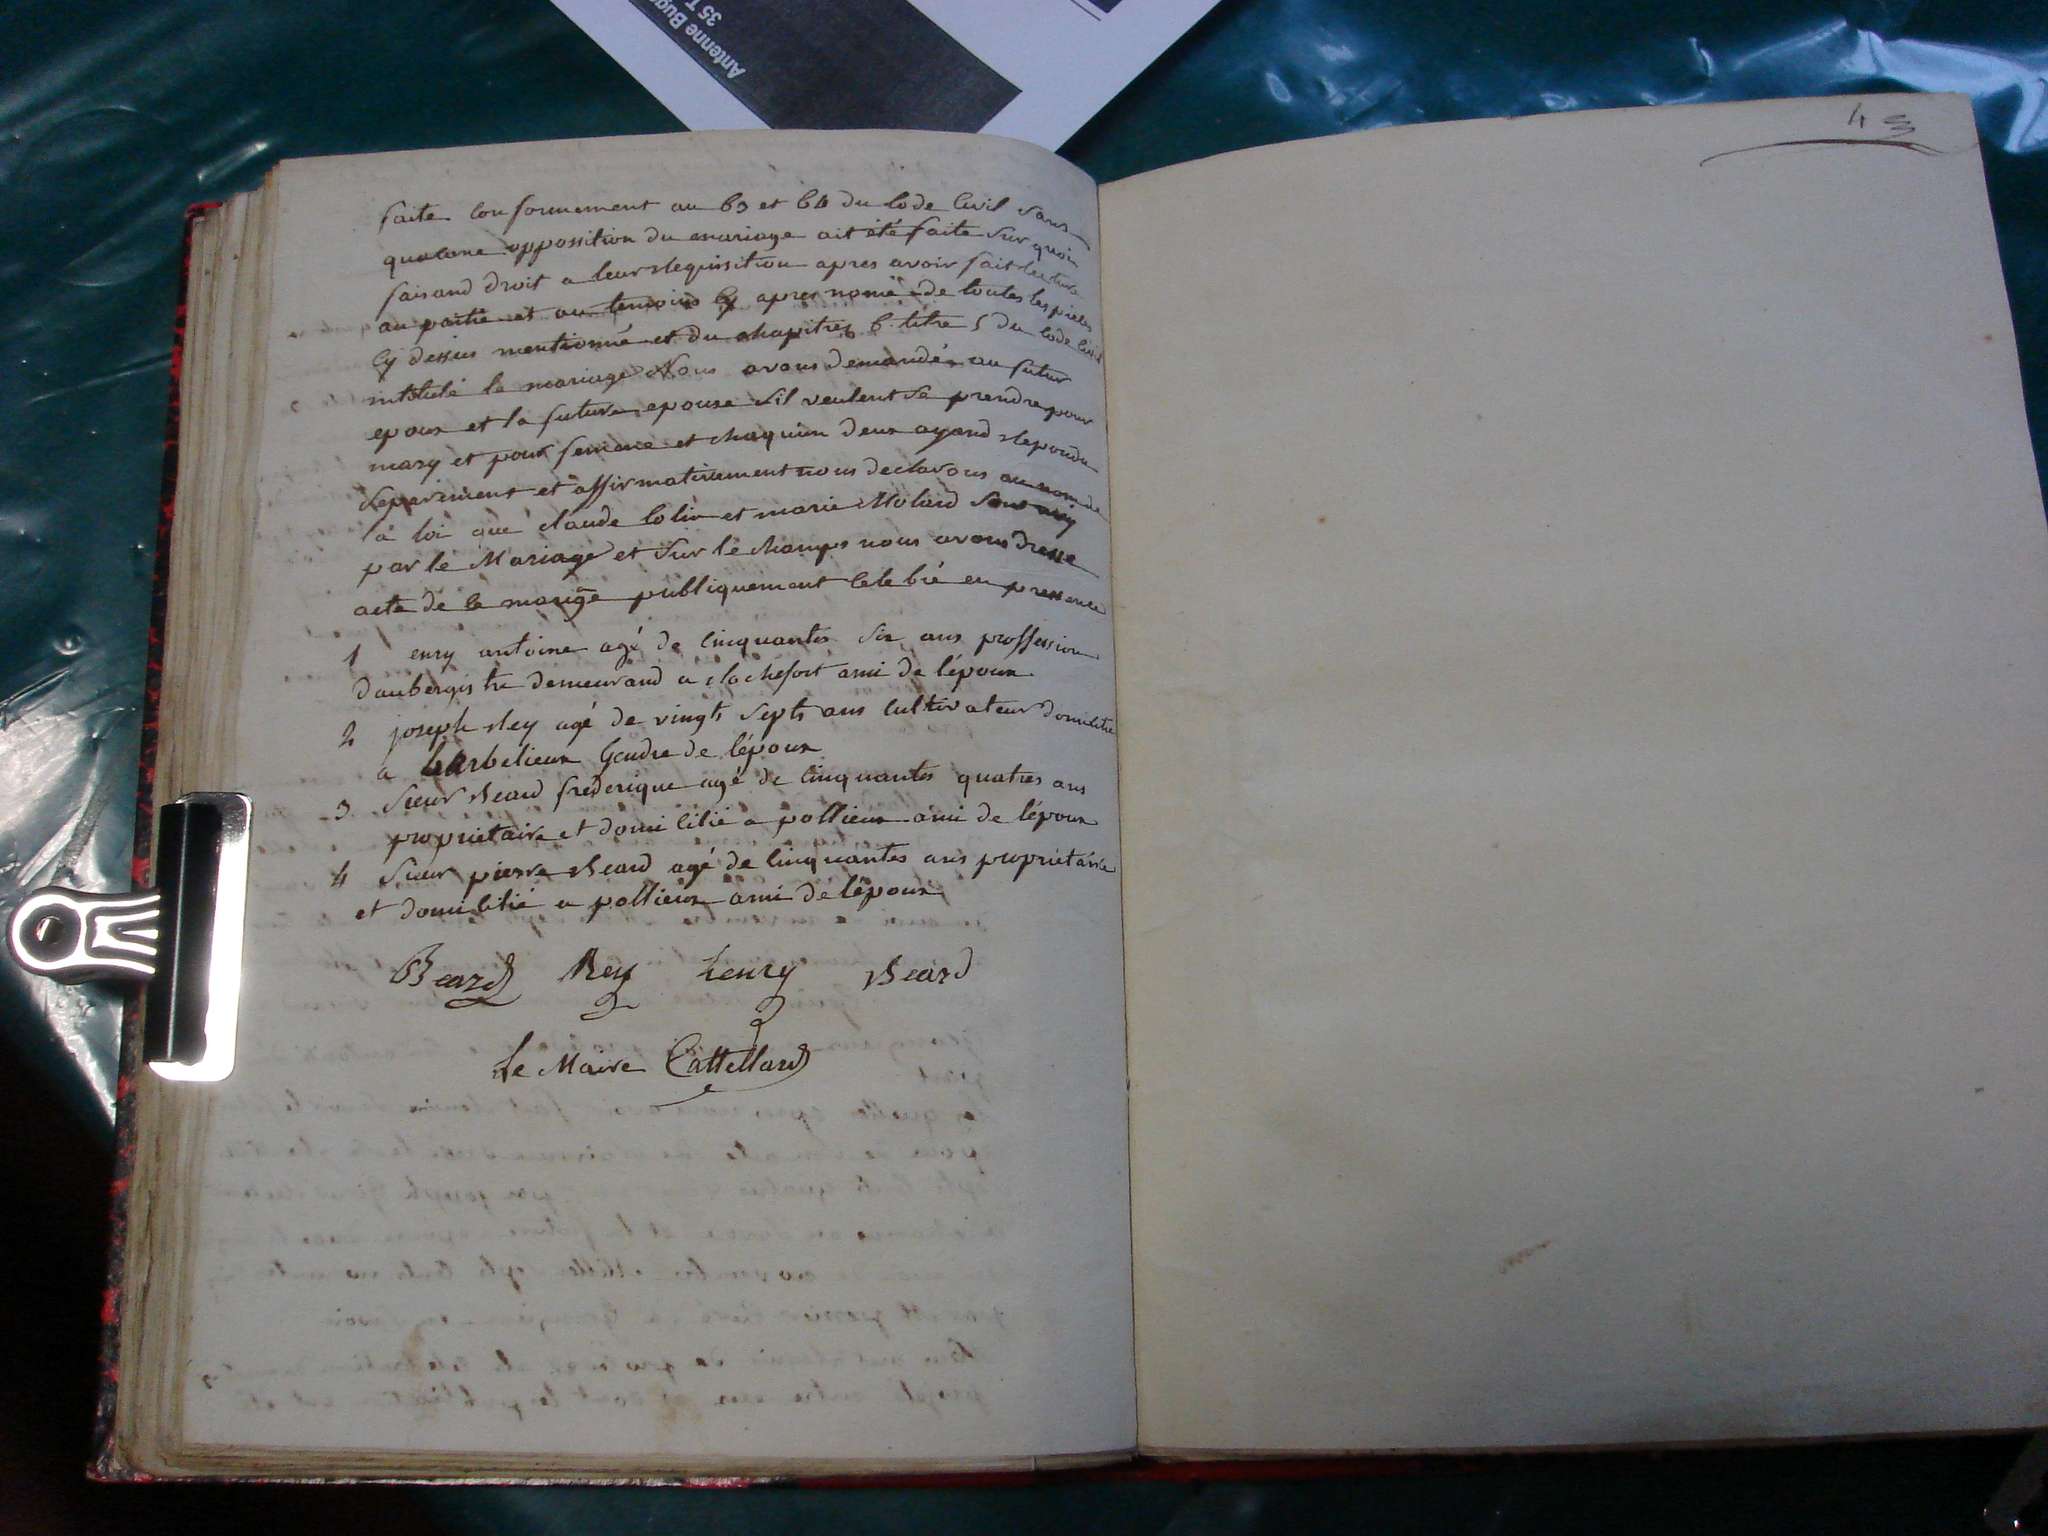 Antenne Bug
35 T
4
faite conformement au 63 et 64 du Code Civil sans
qu'aucune opposition du mariage ait été faite sur quoi
faisand droit a leur Requisition apres avoir fait lecture
au partie et au temoins Cy apres nomé de toutes les pieces
Cy dessus mentionné et du chapitres 6. titre 5 du Code Civil
intitulé le mariage Nous avons demandé au futur
epoux et la future epouse sil veulent se prendre pour
mary et pour femme et chaquun deux ayand Repondu
separement et affirmativement nous declarons au nom de
la loi que claude Colin et marie Molard sont uny
par le Mariage et sur le champs nous avons dresse
acte de le mariage publiquement Celebré en pressence
1 enry antoine agé de Cinquantes six ans proffession
daubergiste demeurand a Rochefort ami de lépoux
2 joseph Rey agé de vingts septs ans Cultivateur domicilié
a barbelieux Gendre de lépoux
3 Sieur Beard frederique agé de Cinquantes quatres ans
proprietaire et domicilié a pollieux ami de lépoux
4 Sieur pierre Beard agé de Cinquantes ans proprietaire
et domicilié a pollieux ami de lépoux
Beard Rey henry Beard
Le Maire Cattelland